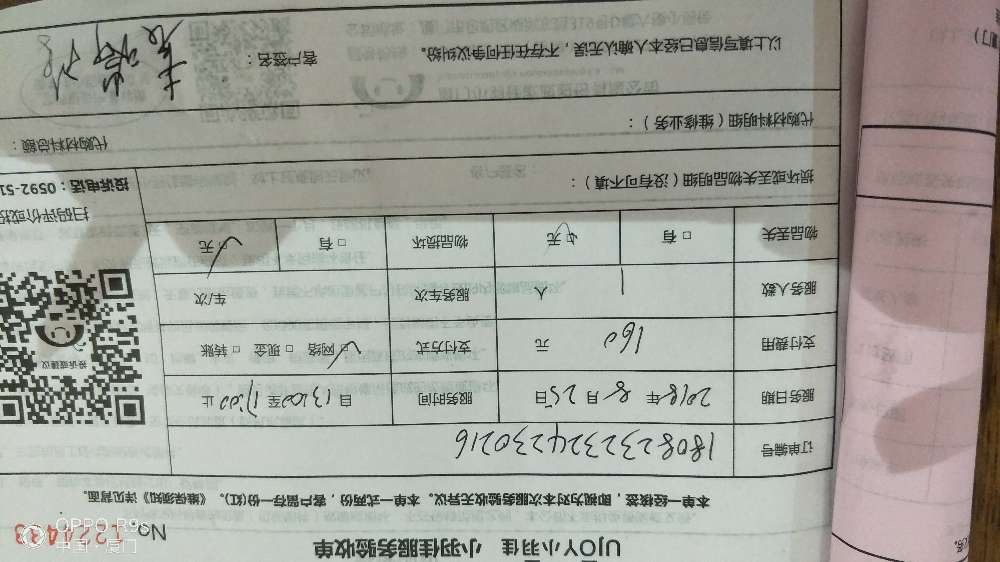 UJOY小羽佳 小羽佳服务验收单
No 1224433
本单一经核签，即视为对本次服务验收无异议。本单一式两份，客户留存一份(红)。《维保须知》详见背面。
订单编号 180823232423 0216
服务日期 2018年8月25日 服务时间 日13:00至17:00止
支付费用 160 元 支付方式 ☑网络 □现金 □转账
服务人数 1 人 服务车次 车/次
物品丢失 □有 ☑无 物品损坏 □有 ☑无
投诉或建议
扫码评价或投
投诉电话：0592-51
损坏或丢失物品明细（没有可不填）：
代购材料明细（维修业务）：
代购材料总额：
以上填写信息已经本人确认无误，不存在任何争议纠纷。
客户签名：
OPPO R9s
中国·厦门